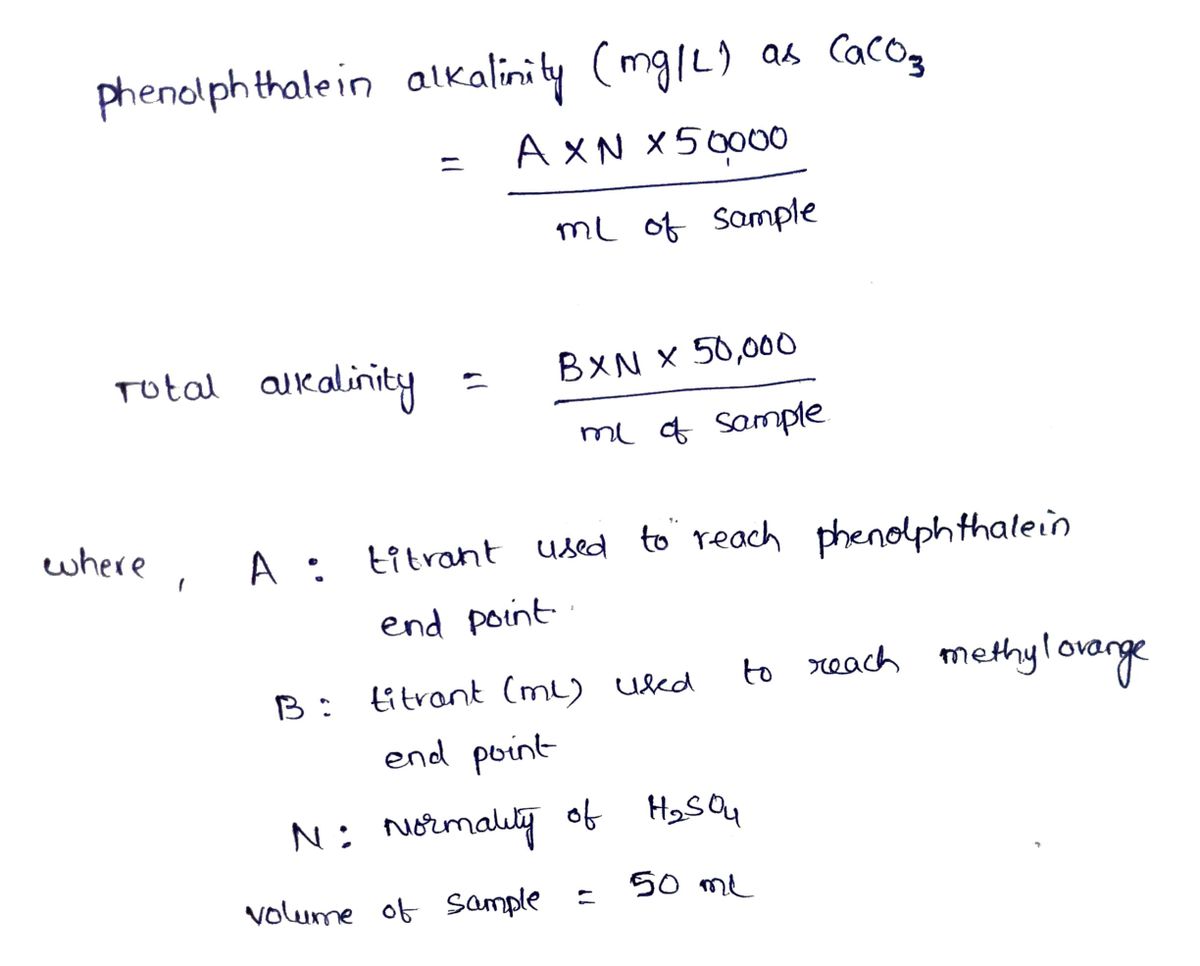 phenolphthalein alkalinity (mg/L) as CaCO3
= A X N X 50,000
mL of sample
Total alkalinity = B X N X 50,000
mL of sample
where, A : titrant used to reach phenolphthalein
end point.
B : titrant (mL) used to reach methyl orange
end point
N : Normality of H2SO4
volume of sample = 50 mL